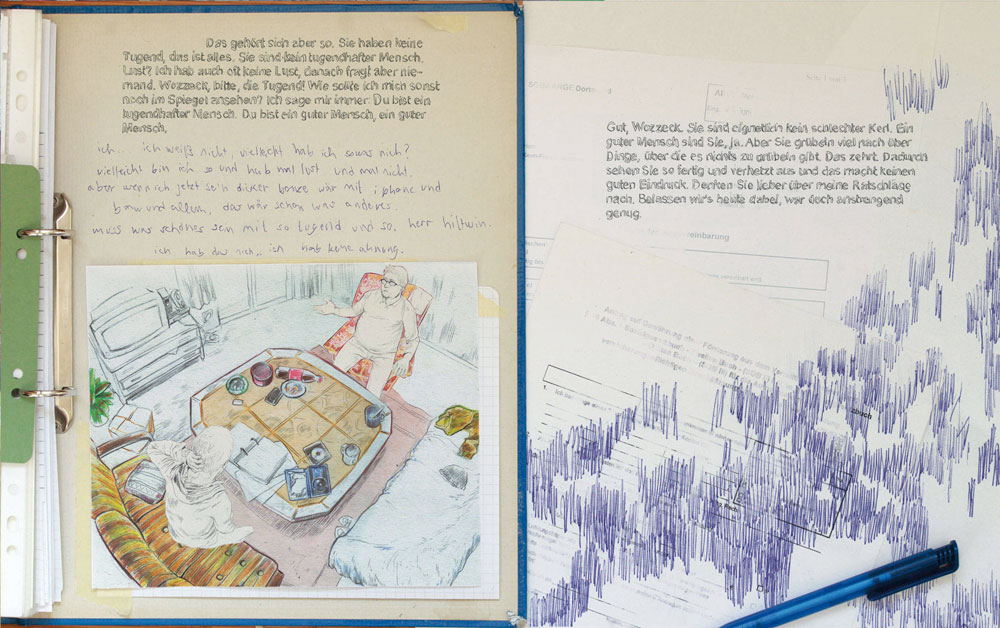 Das gehört sich aber so. Sie haben keine
Tugend, das ist alles. Sie sind kein tugendhafter Mensch.
Lust? Ich hab auch oft keine Lust, danach fragt aber nie-
mand. Wozzeck, bitte, die Tugend! Wie sollte ich mich sonst
noch im Spiegel ansehen? Ich sage mir immer: Du bist ein
tugendhafter Mensch. Du bist ein guter Mensch, ein guter
Mensch.
ich... ich weiß nicht, vielleicht hab ich sowas nich?
vielleicht bin ich so und hab mal lust und mal nicht.
aber wenn ich jetzt so'n dicker bonze wär mit iphone und
bmw und allem, das wär schon was anderes.
muss was schönes sein mit so tugend und so. herr hiltwin.
ich hab das nich.. ich hab keine ahnung.
Gut, Wozzeck. Sie sind eigentlich kein schlechter Kerl. Ein
guter Mensch sind Sie, ja. Aber Sie grübeln viel nach über
Dinge, über die es nichts zu grübeln gibt. Das zehrt. Dadurch
sehen Sie so fertig und verhetzt aus und das macht keinen
guten Eindruck. Denken Sie lieber über meine Ratschläge
nach. Belassen wir's heute dabei, war doch anstrengend
genug.